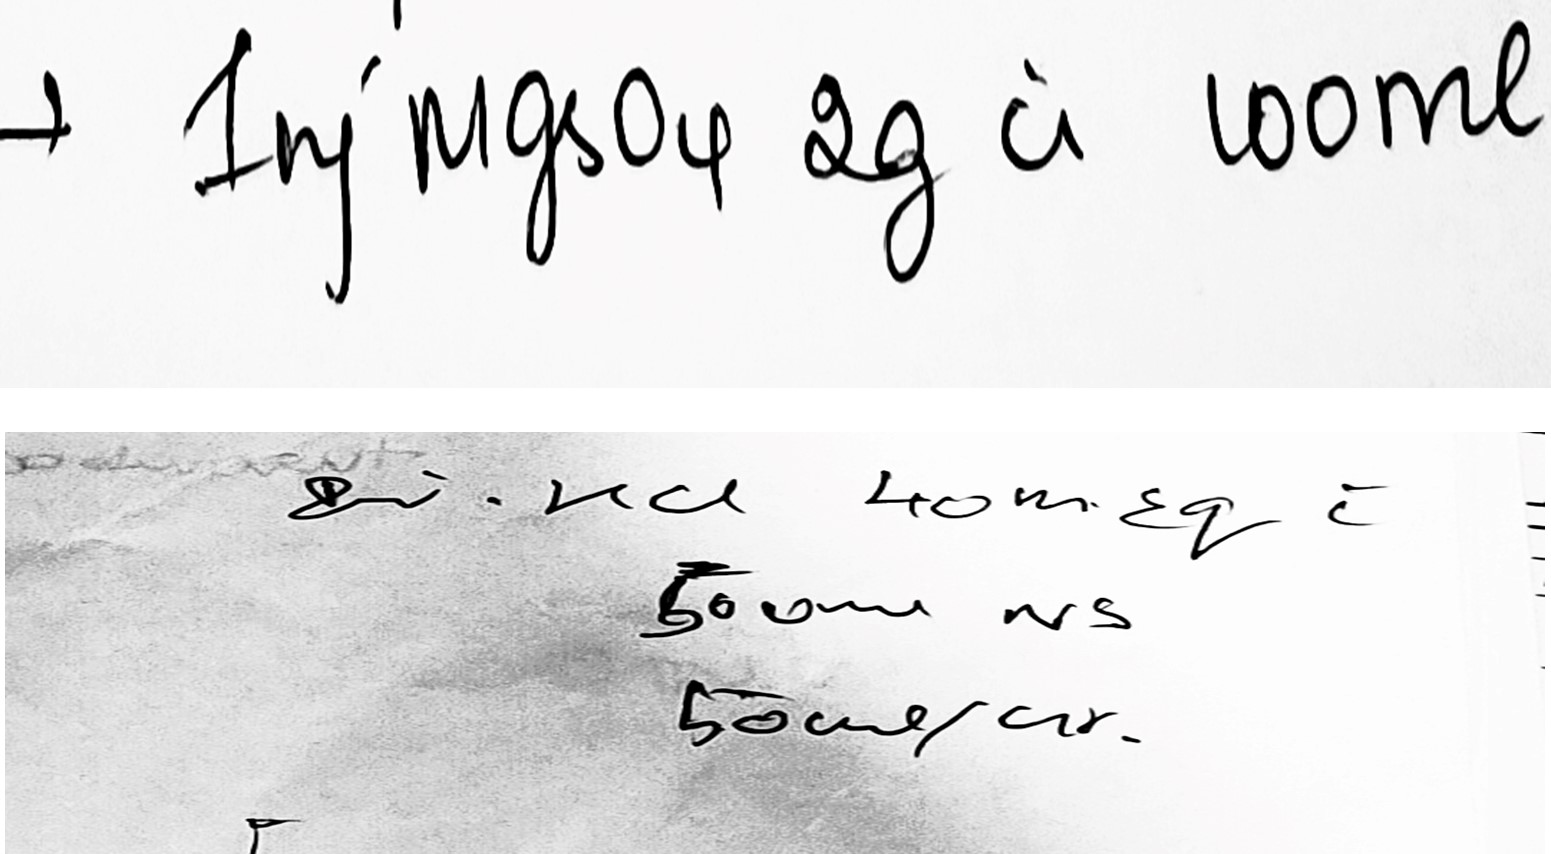 → Inj MgSO4 2g c̄ 100ml
Inj. KCl 40 mEq c̄
500ml NS
50ml/hr.